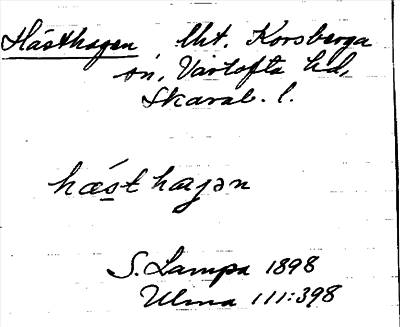 Hästhagen, lht. Korsberga
sn, Vartofta hd,
Skarab. l.
hæst hagən
S. Lampa 1898
Ulma 111:398